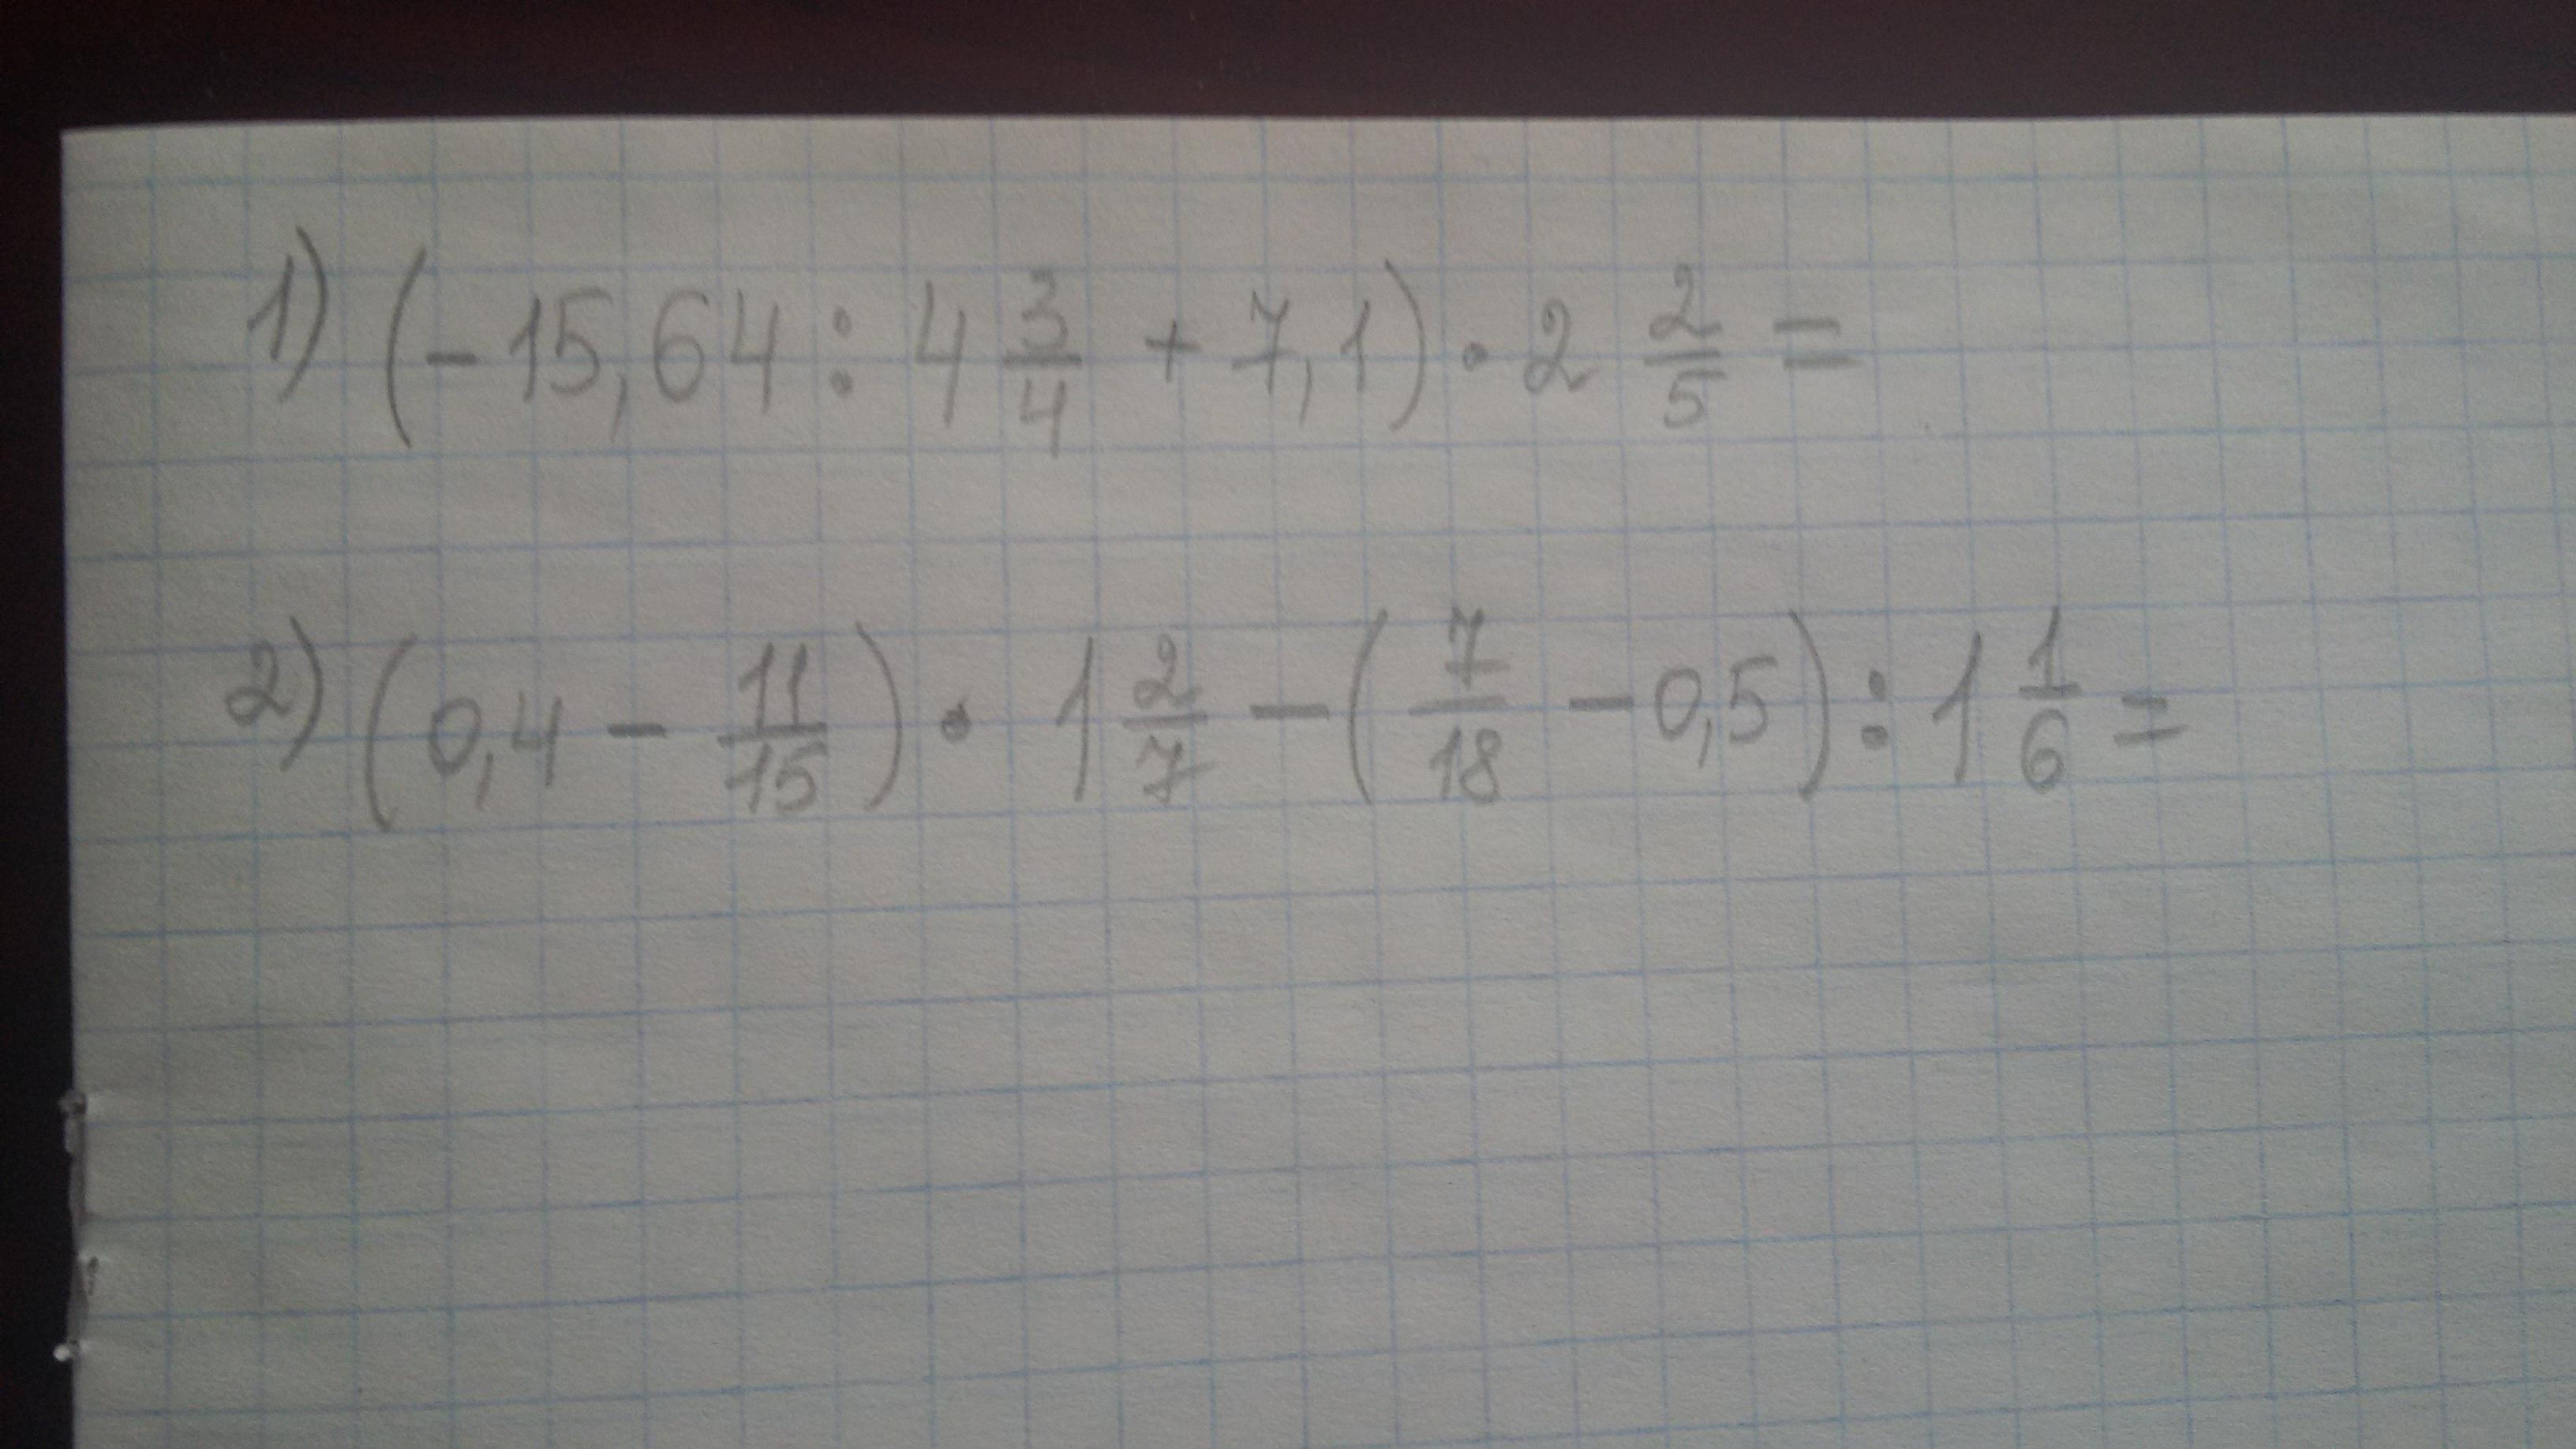 1) (-15,64 : 4 3/4 + 7,1) · 2 2/5 =
2) (0,4 - 11/15) · 1 2/7 - (7/18 - 0,5) : 1 1/6 =